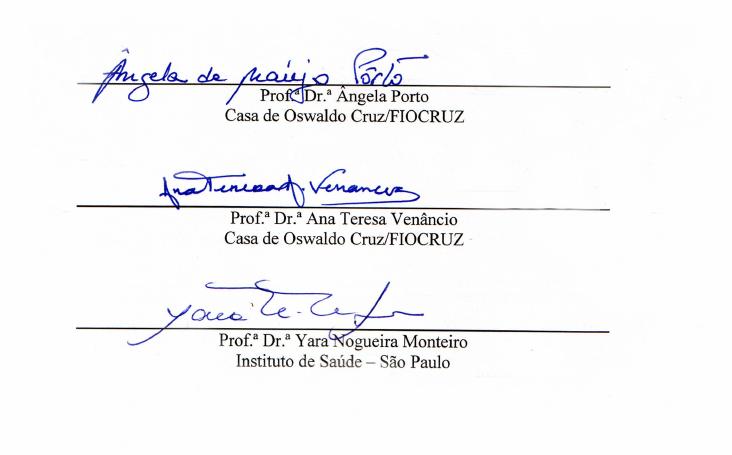 Ângela de Araújo Pôrto
Prof.ª Dr.ª Ângela Porto
Casa de Oswaldo Cruz/FIOCRUZ
Ana Teresa A. Venancio
Prof.ª Dr.ª Ana Teresa Venâncio
Casa de Oswaldo Cruz/FIOCRUZ
Yara
Prof.ª Dr.ª Yara Nogueira Monteiro
Instituto de Saúde – São Paulo